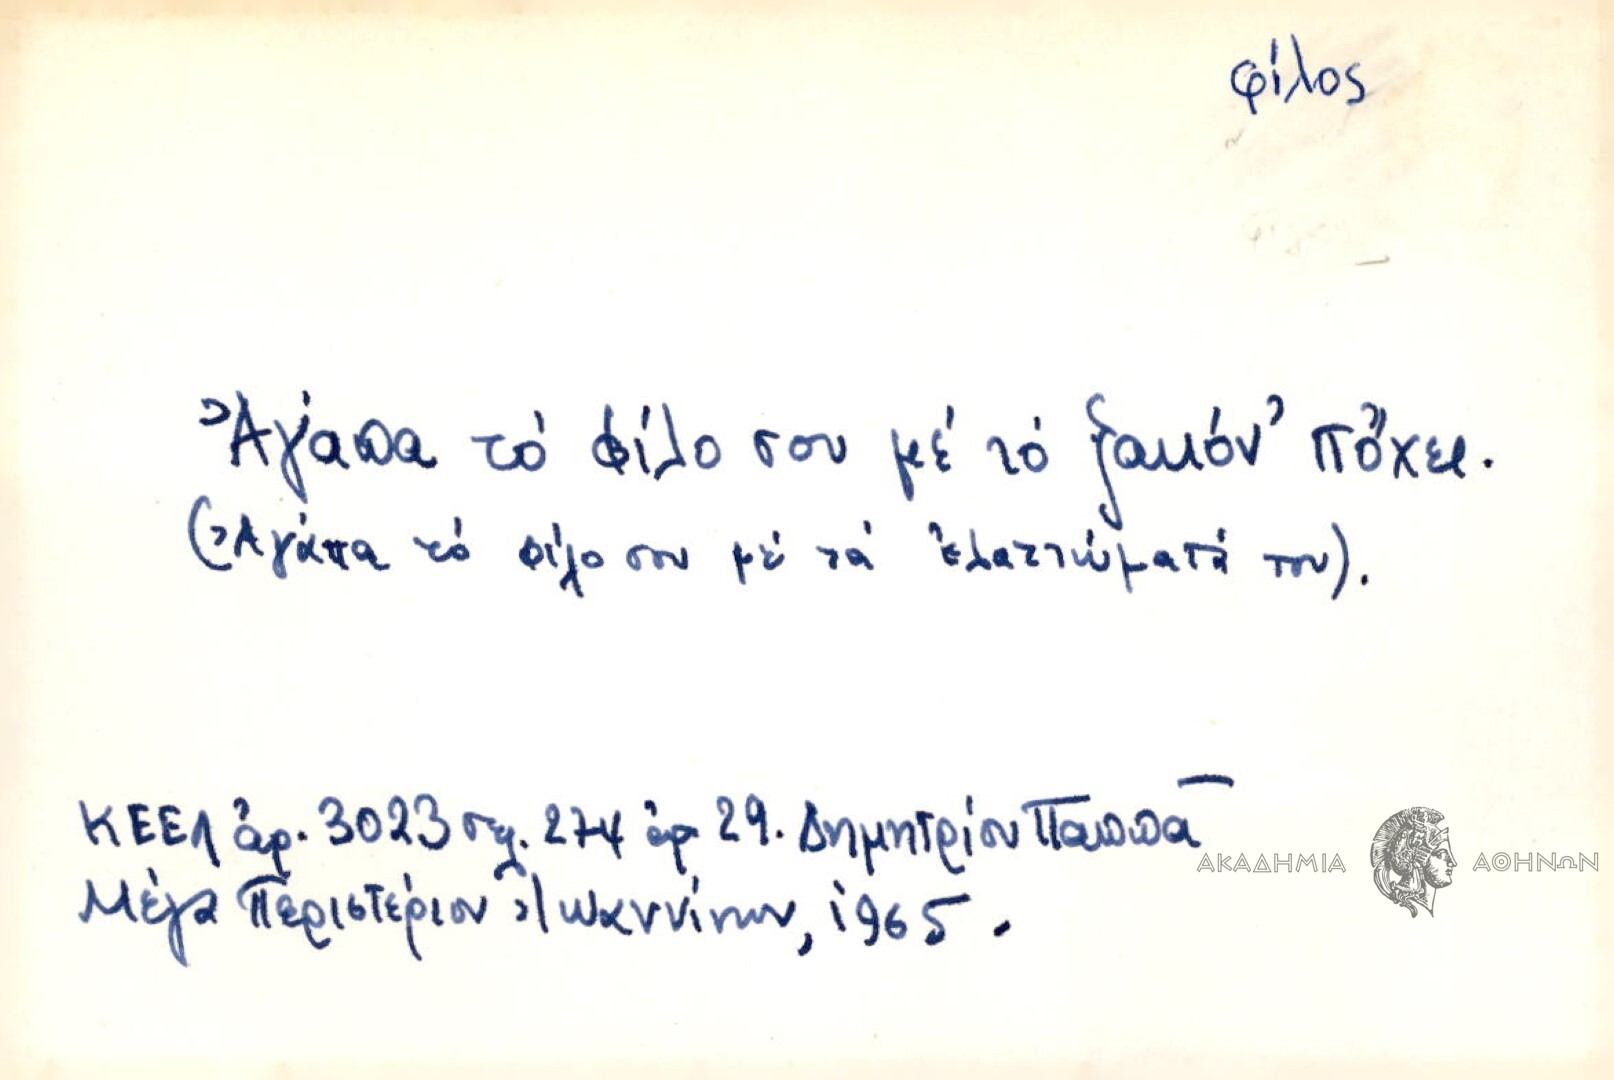 φίλος
Ἀγάπα τό φίλο σου μέ τό ζακόν' πὄχει.
(Ἀγάπα τό φίλο σου μέ τά ἐλαττώματά του).
ΚΕΕΛ ἀρ. 3023 σελ. 274 ἀρ 29. Δημητρίου Παππᾶ
Μέγα Περιστέριον Ἰωαννίνων, 1965.
ΑΚΑΔΗΜΙΑ ΑΘΗΝΩΝ